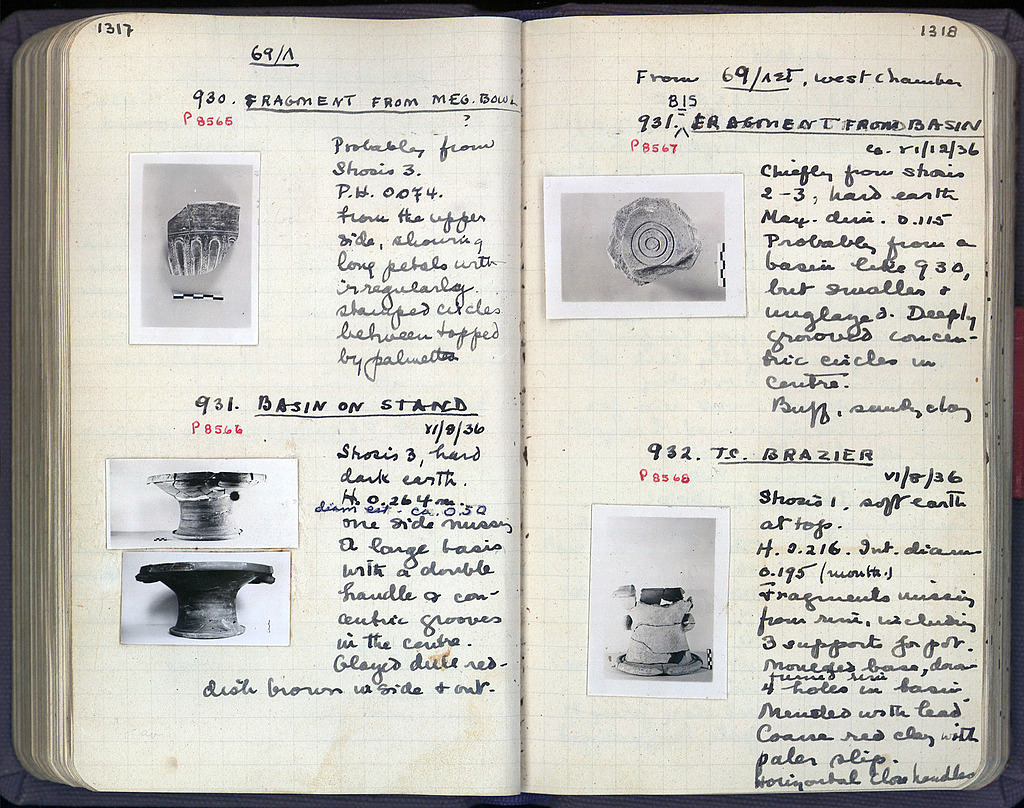 1317
69/Λ
930. FRAGMENT FROM MEG. BOWL
?
P 8565
Probably from
Strosis 3.
P.H. 0.074.
From the upper
side, showing
long petals with
irregularly
stamped circles
between topped
by palmettes
931. BASIN ON STAND
P 8566
VI/8/36
Strosis 3, hard
dark earth.
H. 0.264 m.
diam est. ca. 0.50
one side missing
A large basin
with a double
handle & con-
centric grooves
in the centre.
Glazed dull red-
dish brown inside & out.
1318
From 69/ , West Chamber
BIS
931. FRAGMENT FROM BASIN
P 8567
ca. VI/12/36
Chiefly from strosis
2-3, hard earth
Max. dim. 0.115
Probably from a
basin like 930,
but smaller &
unglazed. Deeply
grooved concen-
tric circles in
centre.
Buff, sandy clay
932. TC. BRAZIER
P 8568
VI/8/36
Strosis 1, soft earth
at top.
H. 0.216. Int. diam
0.195 (mouth.)
Fragments missing
from rim, including
3 supports for pot.
Moulded base, down
turned rim
4 holes in basin
Mended with lead
Coarse red clay with
paler slip.
Horizontal close handles